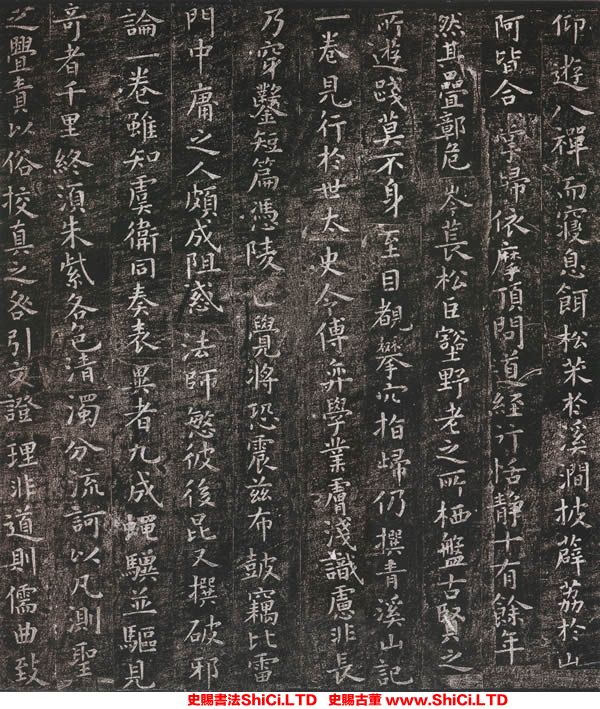 仰遊八禪而寢息餌松朮於溪澗披薜荔於山
阿皆合掌歸依摩頂問道經行恬靜十有餘年
然其疊鄣危岑萇松巨壑野老之所栖盤古賢之
所遊踐莫不身至目覩攀穴指歸仍撰青溪山記
一卷見行於世太史令傅弈學業膚淺識慮非長
乃穿鑿短篇憑陵正覺將恐震茲布鼓竊比雷
門中庸之人頗成阻惑法師慜彼後昆又撰破邪
論一卷雖知虞衛同奏表異者九成蠅驥並驅見
奇者千里終須朱紫各色清濁分流訶以凡測聖
之舋責以俗校真之咎引文證理非道則儒曲致
史賜書法ShiCi.LTD 史賜古董 www.ShiCi.LTD